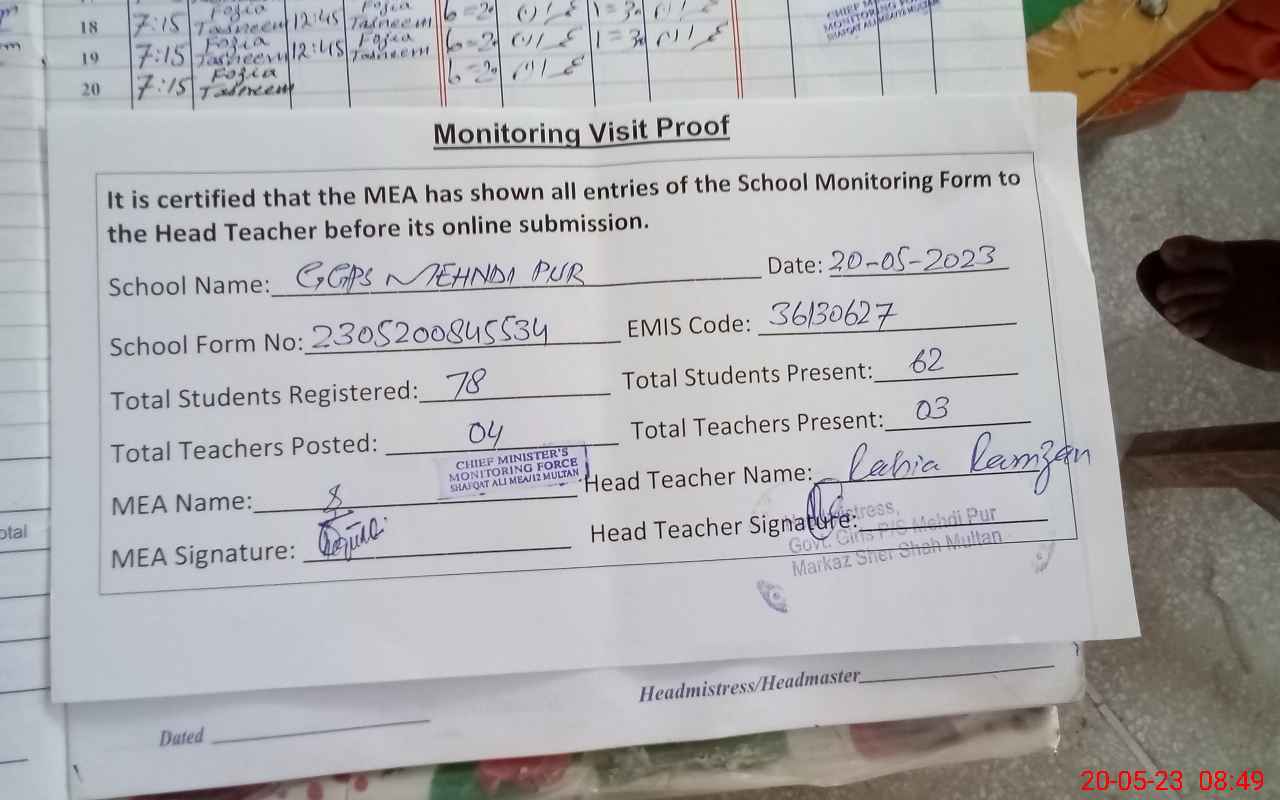 18 7:15 Fozia Tasneem 12:45 Fozia Tasneem
19 7:15 Fozia Tasneem 12:45 Fozia Tasneem
20 7:15 Fozia Tasneem
CHIEF MINISTER'S
MONITORING FORCE
SHAFQAT ALI MEA/12 MULTAN
Monitoring Visit Proof
It is certified that the MEA has shown all entries of the School Monitoring Form to
the Head Teacher before its online submission.
School Name: GGPS MEHNDI PUR Date: 20-05-2023
School Form No: 2305200845534 EMIS Code: 36130627
Total Students Registered: 78 Total Students Present: 62
Total Teachers Posted: 04 Total Teachers Present: 03
CHIEF MINISTER'S
MONITORING FORCE
SHAFQAT ALI MEA/12 MULTAN
MEA Name: Head Teacher Name: Rabia Ramzan
MEA Signature: Head Teacher Signature:
Govt. Girls P/S Mehdi Pur
Markaz Sher Shah Multan
otal
Headmistress/Headmaster
Dated
20-05-23 08:49